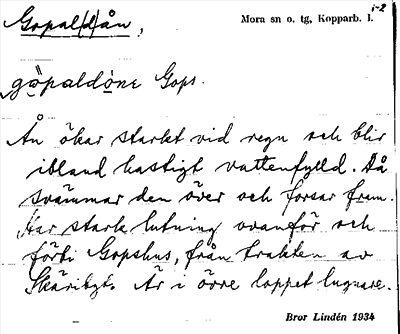 Gopal(d)ån,
Mora sn o. tg, Kopparb. l.
1-2
göpaldóne Gops.
Ån ökar starkt vid regn och blir
ibland hastigt vattenfylld. Då
svämmar den över och forsar fram.
Har stark lutning ovanför och
förbi Gopshus, från trakten av
Skäribyt. Är i övre loppet lugnare.
Bror Lindén 1934